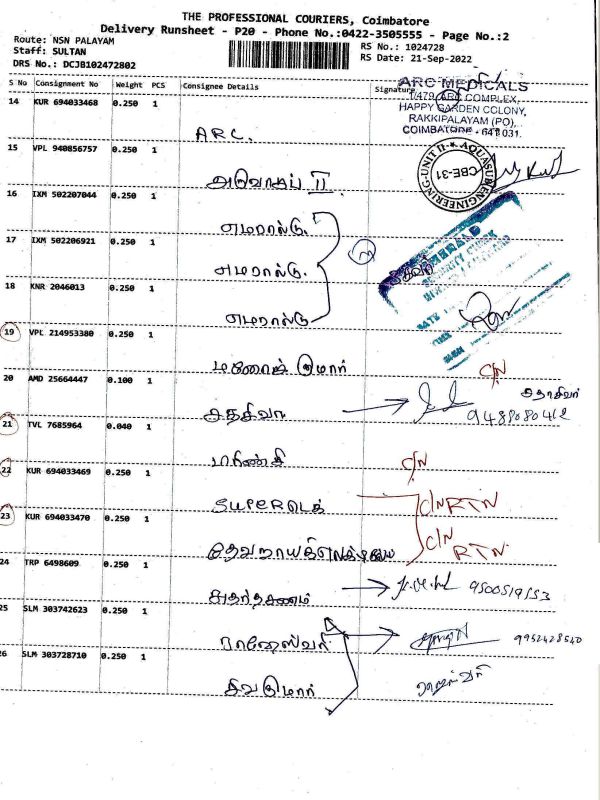 THE PROFESSIONAL COURIERS, Coimbatore
Delivery Runsheet - P20 - Phone No.:0422-3505555 - Page No.:2
Route: NSN PALAYAM
Staff: SULTAN
DRS No.: DCJB102472802
RS No.: 1024728
RS Date: 21-Sep-2022
S No Consignment No Weight PCS Consignee Details Signature
ARC MEDICALS
1/479, ARC COMPLEX,
HAPPY GARDEN COLONY,
RAKKIPALAYAM (PO),
COIMBATORE - 641 031.
14 KUR 694033468 0.250 1
ARC.
15 VPL 940856757 0.250 1
II
AQUASUB ENGINEERING-UNIT II
CBE-31
16 IXM 502207044 0.250 1
எமரால்டு.
17 IXM 502206921 0.250 1
எமரால்டு.
EMERALD
18 KNR 2046013 0.250 1
எமரால்டு
19 VPL 214953380 0.250 1
மனோஜ் குமார் C/N
20 AMD 25664447 0.100 1
சதாசிவம் 9488080412
21 TVL 7685964 0.040 1
C/N
22 KUR 694033469 0.250 1
SUPER டெக் C/N RTN
23 KUR 694033470 0.250 1
C/N RTN
24 TRP 6498609 0.250 1
9500519153
25 SLM 303742623 0.250 1
ராஜேஸ்வரி 9952428540
26 SLM 303728710 0.250 1
சிவகுமார்